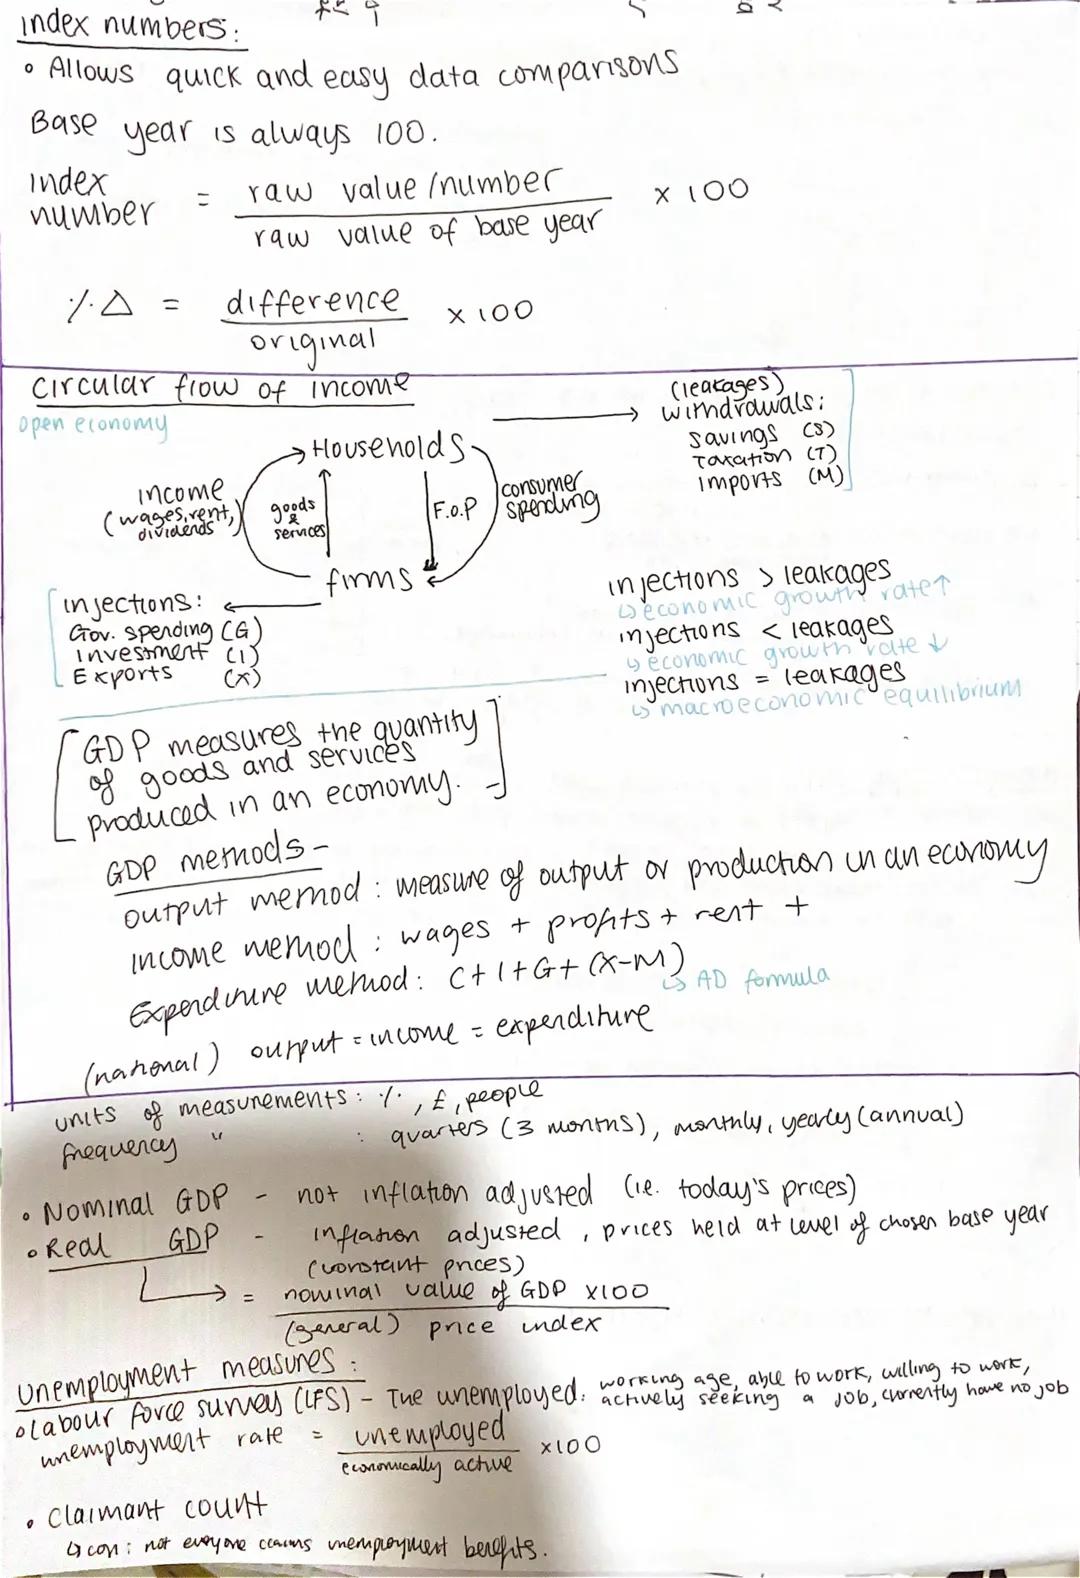 index numbers:
• Allows quick and easy data comparisons
Base year is always 100.
index number = raw value/number / raw value of base year x 100
%Δ = difference / original x 100
circular flow of income
open economy
(leakages)
withdrawals:
savings (S)
Taxation (T)
imports (M)
Households
income
(wages, rent,
dividends
goods
&
services
F.O.P
consumer
spending
firms
injections:
Gov. spending (G)
investment (I)
Exports (X)
injections > leakages
↳ economic growth rate ↑
injections < leakages
↳ economic growth rate ↓
injections = leakages
↳ macroeconomic equilibrium
[GDP measures the quantity
of goods and services
produced in an economy.]
GDP methods -
output method: measure of output or production in an economy
income method: wages + profits + rent +
Expenditure method: C+I+G+(X-M)
↳ AD formula
(national) output = income = expenditure
units of measurements: %, £, people
frequency " : quarters (3 months), monthly, yearly (annual)
• Nominal GDP - not inflation adjusted (ie. today's prices)
• Real GDP - inflation adjusted, prices held at level of chosen base year
(constant prices)
→ = nominal value of GDP x100
(general) price index
unemployment measures:
• labour force survey (LFS) - The unemployed: working age, able to work, willing to work,
actively seeking a job, currently have no job
unemployment rate = unemployed / economically active x100
• claimant count
↳ con: not everyone claims unemployment benefits.